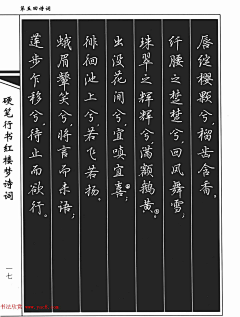 第五回诗词
唇绽樱颗兮,榴齿含香。
纤腰之楚楚兮,回风舞雪;
珠翠之辉辉兮,满额鹅黄。
出没花间兮,宜嗔宜喜;
徘徊池上兮,若飞若扬。
蛾眉颦笑兮,将言而未语;
莲步乍移兮,待止而欲行。
硬笔行书红楼梦诗词
一七